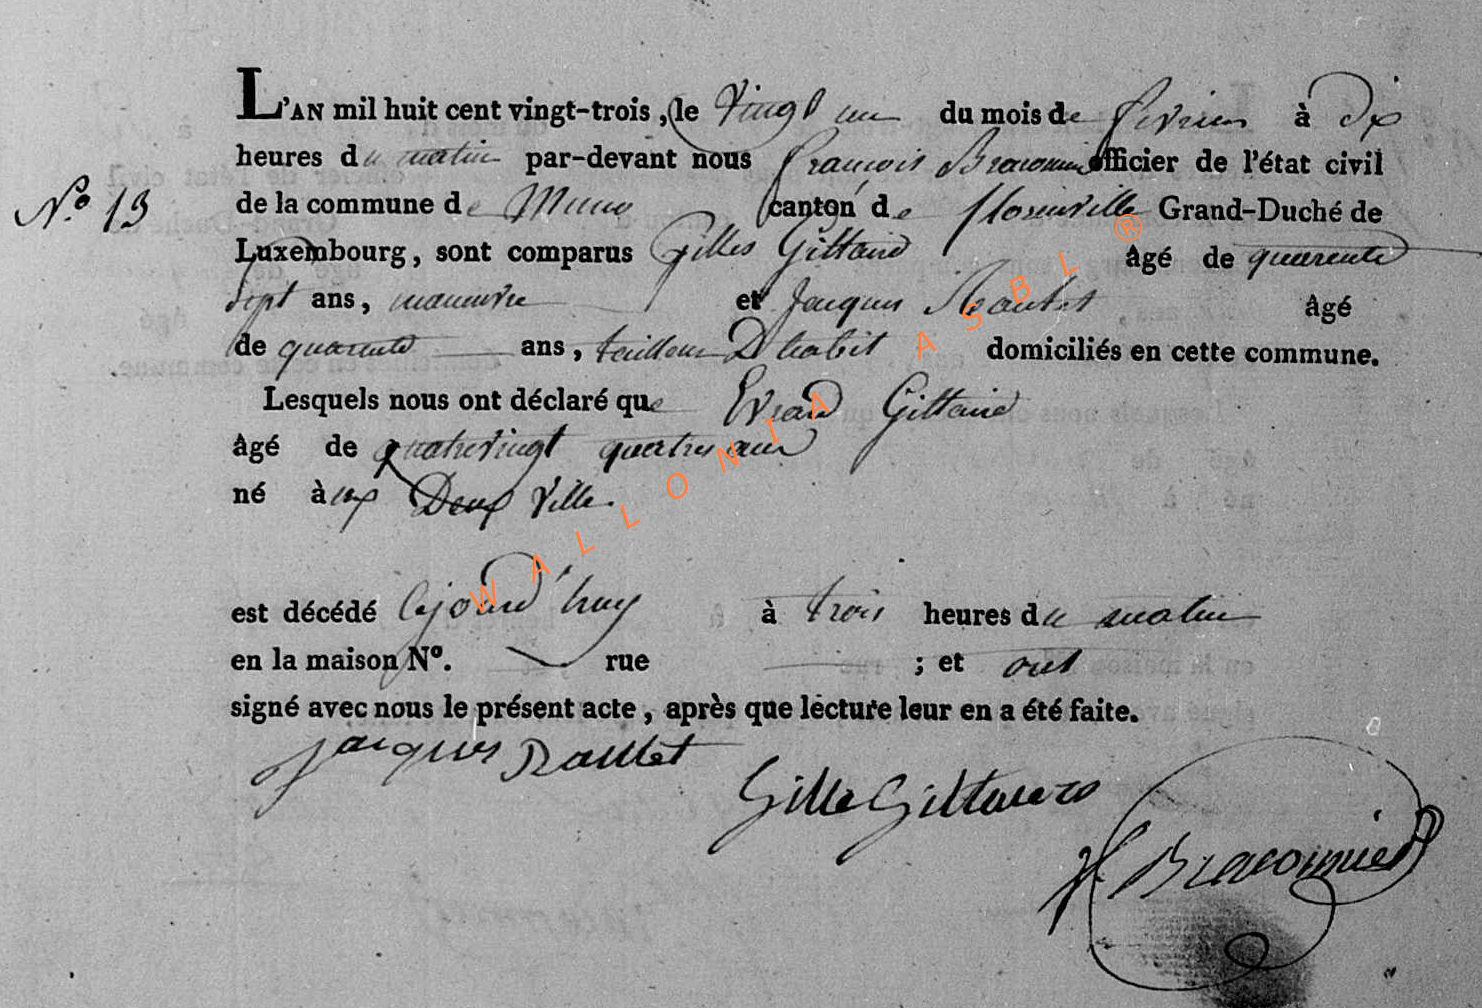 L'AN mil huit cent vingt-trois, le vingt un du mois de fevrier à dix
heures du matin par-devant nous francois Braconnier officier de l'état civil
N.o 13 de la commune de Muno canton de florenville Grand-Duché de
Luxembourg, sont comparus Gilles Giltaire âgé de quarente
sept ans, maneuvre et Jacques âgé
de quarente ans, tailleur D habit domiciliés en cette commune.
Lesquels nous ont déclaré que Evrard Giltaire
âgé de quatrevingt quatres ans
né à ux Deux Ville.
est décédé aujourd'huy à trois heures du matin
en la maison No. rue ; et ont
signé avec nous le présent acte, après que lecture leur en a été faite.
jacques Raullet
Gille Giltaire
f. Braconnier
WALLONIA ASBL ®